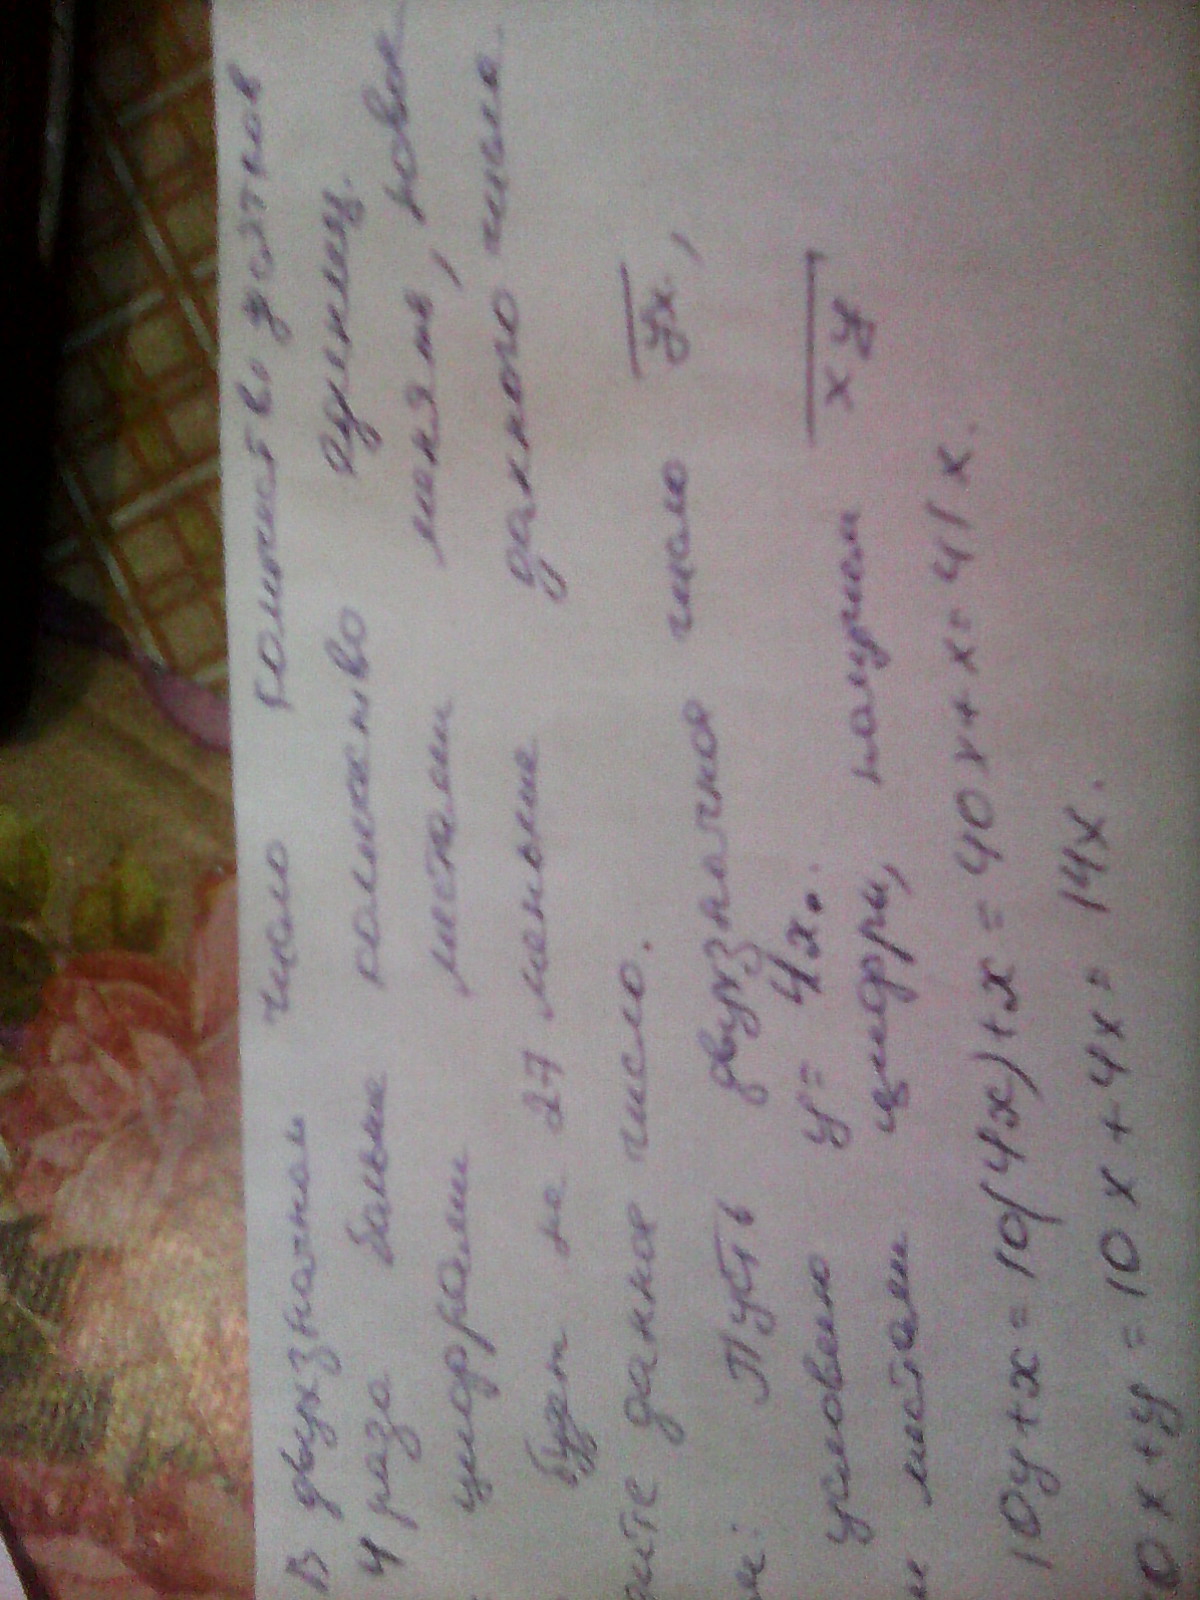 В двухзначном число количество десятков
4 раза больше количество единиц.
цифрами местами менять, ровок
будет на 27 меньше данного числа.
дите данное число.
м: Пусть двузначное число yx,
условею y = 4x.
и местами цифры, получим xy
10y+x=10(4x)+x=40x+x=41x.
10x+y=10x+4x=14x.